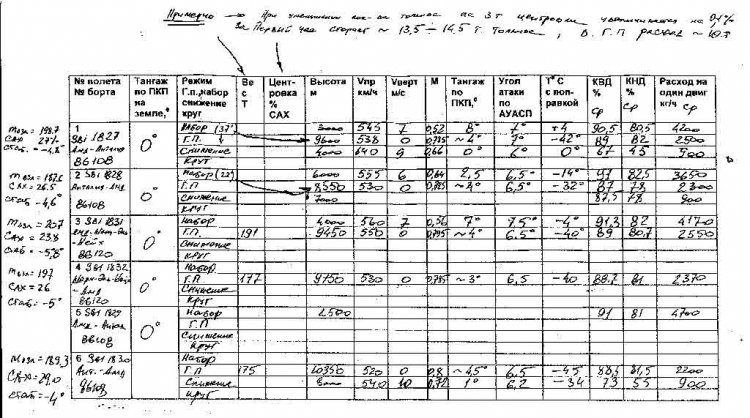 Примерно → При уменьшении кол-ва топлива на 3т центровка увеличивается на 0,1%
За Первый час сгорает ~ 13,5 – 14,5 т. топлива, в Г.П расход ~ 10 т
№ полета № борта | Тангаж по ПКП на земле,° | Режим Г.п.,набор снижение круг | Вес Т | Центровка % САХ | Высота м | Vпр км/ч | Vверт м/с | М | Тангаж по ПКП,° | Угол атаки по АУАСП | Т° С с поправкой | КВД % ср | КНД % ср | Расход на один двиг кг/ч ср
mвзл = 198.7
САХ 27%
стаб. = -4,8°
1 SBI 1827
86108
0°
Набор (37') 545 7 0,52 8° 7° +4 90,5 80,5 4200
Г.П. 9600 538 0 0,785 ~4° 7° -42° 89 82 2500
Снижение 4000 640 9 0,66 0° 6° 0° 67 45
Круг
САХ = 26.5
стаб = -4,6°
2 SBI 1828
86108
0°
Набор (22') 6000 555 6 0,64 2,5 6,5° -14° 91 82,5 3650
Г.П 8550 530 0 6,5° -32° 87 78 2300
Снижение 7000 87,5 78 900
Круг
mвзл = 207
САХ = 23.8
стаб = -5,8°
3 SBI 1831
86120
0°
Набор 4000 560 7 0,56 7° 7.5° -4° 91,3 82 4170
Г.П. 191 9450 550 0 0,795 ~4° 6.5° -40° 89 80,7 2550
Снижение
Круг
mвзл = 197
САХ = 26
стаб = -5°
4 SBI 1832
86120
0°
Набор
Г.П 177 9750 530 0 0,785 ~3° 6,5 -40 88,7 81 2370
Снижение
Круг
5 SBI 1829
86108
0°
Набор 2500 91 81 4700
Г.П
Снижение
Круг
mвзл = 189,3
САХ = 29,0
стаб = -4°
6 SBI 1830
86108
0°
Набор
Г.П 175 10350 520 0 0,8 ~4,5° 6,5 -45 88,5 81,5 2200
Снижение 540 10 0,72 1° 6,2 -34 73 55 900
Круг